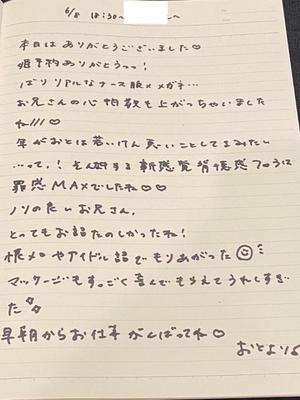 6/8 18:30〜
本日はありがとうございました♡
ありがとうっっ!
ばりリアルなナース服メメガネ…
お兄さんの心拍数も上がっちゃいました
ね///♡
年がおとは若いけん悪いことしてるみたい
…って、!
罪感MAXでしたね♡♡
ノリの良いお兄さん、
とってもお話たのしかったね!
懐メロやアイドル話でもりあがった
マッサージもすっごく喜んでもらえてうれしすぎ
た
早朝からお仕事がんばってね♡
おとより